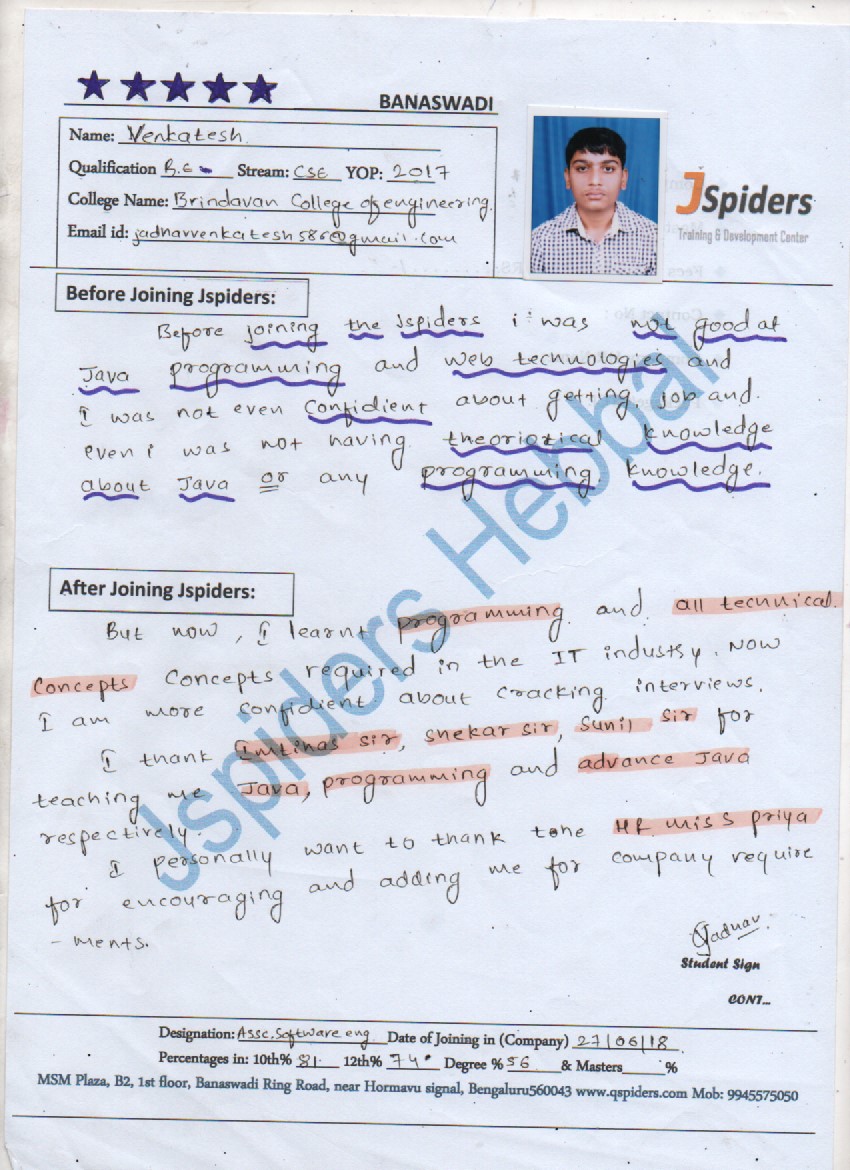 BANASWADI
Name: Venkatesh
Qualification B.E Stream: CSE YOP: 2017
College Name: Brindavan College of engineering.
Email id: jadhavvenkatesh586@gmail.com
JSpiders
Training & Development Center
Before Joining Jspiders:
Before joining the Jspiders i was not good at
Java programming and web technologies and
I was not even Confidient about getting job and.
even i was not having theoriotical knowledge
about Java or any programming knowledge.
After Joining Jspiders:
But now, I learnt programming and all technical
Concepts Concepts required in the IT industry. Now
I am more confidient about cracking interviews.
I thank Imtihas sir, shekar sir, Sunil sir for
teaching me Java, programming and advance Java
respectively.
I personally want to thank tohe HR miss priya
for encouraging and adding me for company require
- ments.
Jadhav
Student Sign
CONT...
Designation: Assc.Software eng Date of Joining in (Company) 27/06/18
Percentages in: 10th% 81. 12th% 74. Degree % 56 & Masters_____%
MSM Plaza, B2, 1st floor, Banaswadi Ring Road, near Hormavu signal, Bengaluru560043 www.qspiders.com Mob: 9945575050
Jspiders Hebbal